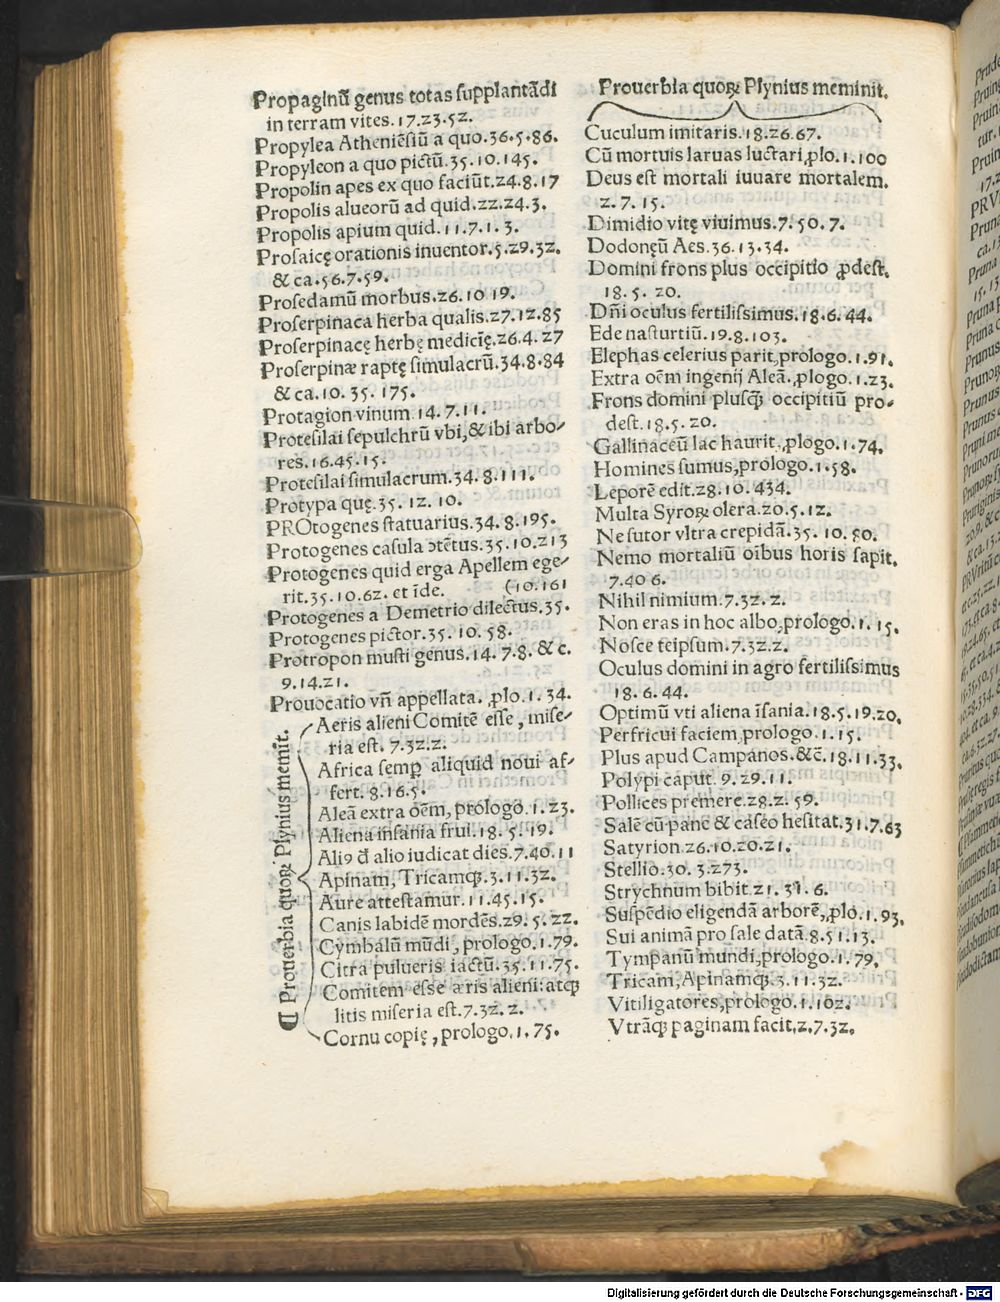 Propaginū genus totas supplantādi
in terram vites.17.23.52.
Propylea Atheniēsiū a quo.36.5.86.
Propyleon a quo pictū.35.10.145.
Propolin apes ex quo faciūt.24.8.17
Propolis alueorū ad quid.22.24.3.
Propolis apium quid.11.7.1.3.
Prosaicę orationis inuentor.5.29.32.
& ca.56.7.59.
Prosedamū morbus.26.10 19.
Proserpinaca herba qualis.27.12.85
Proserpinacę herbę medicię.26.4.27
Proserpinæ raptę simulacrū.34.8.84
& ca.10.35.175.
Protagion vinum 14.7.11.
Protesilai sepulchrū vbi,& ibi arbo-
res.16.45.15.
Protesilai simulacrum.34.8.111.
Protypa quę.35.12.10.
PROtogenes statuarius.34.8.195.
Protogenes casula ↄtētus.35.10.213
Protogenes quid erga Apellem ege-
rit.35.10.62. et īde. (10.161
Protogenes a Demetrio dilectus.35.
Protogenes pictor.35.10.58.
Protropon musti genus.14.7.8. & c.
9.14.21.
Prouocatio vñ appellata. ꝓlo.1.34.
¶ Prouerbia quoꝝ Plynius memit.
Aeris alieni Comitē esse, mise-
ria est. 7.32.2.
Africa semꝑ aliquid noui af-
fert.8.16.5.
Aleā extra oēm, prologo.1.23.
Aliena insania frui.18.5.19.
Aliꝰ đ alio iudicat dies.7.40.11
Apinam, Tricamqꝫ.3.11.32.
Aure attestamur.11.45.15.
Canis labidē mordēs.29.5.22.
Cymbalū mūdi, prologo.1.79.
Citra pulueris iactū.35.11.75.
Comitem esse æris alieni: atqꝫ
litis miseria est.7.32.2.
Cornu copię, prologo.1.75.
Prouerbia quoꝝ Plynius meminit.
Cuculum imitaris.18.26.67.
Cū mortuis laruas luctari,ꝓlo.1.100
Deus est mortali iuuare mortalem.
2.7.15.
Dimidio vitę viuimus.7.50.7.
Dodonęū Aes.36.13.34.
Domini frons plus occipitio ꝓdest.
18.5.20.
Dñi oculus fertilissimus.18.6.44.
Ede nasturtiū.19.8.103.
Elephas celerius parit,prologo.1.91.
Extra oēm ingenij Aleā.ꝓlogo.1.23.
Frons domini plusqꝫ occipitiū pro-
dest.18.5.20.
Gallinaceū lac haurit,ꝓlogo.1.74.
Homines sumus,prologo.1.58.
Leporē edit.28.10.434.
Multa Syroꝝ olera.20.5.12.
Ne sutor vltra crepidā.35.10.80.
Nemo mortaliū oībus horis sapit.
7.40 6.
Nihil nimium.7.32.2.
Non eras in hoc albo,prologo.1.15.
Nosce teipsum.7.32.2.
Oculus domini in agro fertilissimus
18.6.44.
Optimū vti aliena īsania.18.5.19.20.
Perfricui faciem,prologo.1.15.
Plus apud Campanos.&c̄.18.11.33.
Polypi caput.9.29.11.
Pollices premere.28.2.59.
Salē cū pane & caseo hesitat.31.7.63
Satyrion.26.10.20.21.
Stellio.30.3.273.
Strychnum bibit.21.31.6.
Suspēdio eligendā arborē,ꝓlo.1.93.
Sui animā pro sale datā.8.51.13.
Tympanū mundi,prologo.1.79.
Tricam,Apinamqꝫ.3.11.32.
Vitiligatores,prologo.1.102.
Vtrāqꝫ paginam facit.2.7.32.
Digitalisierung gefördert durch die Deutsche Forschungsgemeinschaft - DFG